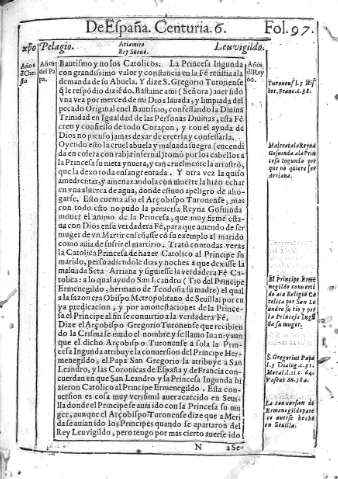 De España. Centuria. 6. Fol. 97.
Pelagio. Ariamiro Rey Sueuo. Leuvigildo.
Bautismo y no los Catolicos. La Princesa Ingunda
con grandissimo valor y constancia en la Fê resistia a la
demanda de su Abuela. Y dize S. Gregorio Turonense
q̃ le respõdio diziẽdo, Bastame a mi (Señora) auer sido
vna vez por merced de mi Dios lauada, y limpiada del
pecado Original en el Bautismo, confessando la Diuina
Trinidad en Igualdad de las Personas Diuinas, esta Fê
creo y confiesso de todo Coraçon, y con el ayuda de
Dios no pienso jamas dexar de creerla y confessarla.
Oyendo esto la cruel abuela y maluada suegra (encendida
en colera con rabia infernal) tomó por los cabellos a
la Princesa su nieta y nuera, y tan cruelmente la arrastrô,
que la dexo toda ensangrentada. Y otra vez la quiso
amedrentar, y amenazandola con muerte la hizo echar
en vna alberca de agua, donde estuuo a peligro de ahogarse.
Esto cuenta assi el Arçobispo Turonense, mas
con todo esto no pudo la peruersa Reyna Gosuinda
mouer el animo de la Princesa, que muy firme estaua
con Dios en la verdadera Fê, para que auiendo de ser
muger de vn Martir
Tratô con todas veras
la Catolica Princesa de hazer Catolico al Principe su
marido, persuadiendole dias y noches a que dexasse la
malnada Seta Arriana y siguiesse la verdadera Fê Catolica:
a lo qual ayudô San Leandro (Tio del Principe
Ermenegildo, hermano de Teodosia su madre) el qual
a la sazon era Obispo Metropolitano de Seuilla: por cuya
predicacion, y por amonestaciones de la Princesa
el Principe al fin se conuirtio a la verdadera Fê.
Dize el Arçobispo Gregorio Turonense que recibiendo
la Crisma se mudo el nombre y se llamo Iuan: y aunque
el dicho Arçobispo Turonense a sola la Princesa
Ingunda atribuye la conuersion del Principe Hermenegildo,
el Papa San Gregorio la atribuye a San
Leandro, y las Coronicas de España y de Francia concuerdan
en que San Leandro y la Princesa Ingunda hizieron
Catolico al Principe Ermenegildo. Esta conuersion
es cosa muy verisimil auerse hecho en Seuilla
donde el Principe se auia ido con la Princesa su muger,
aunque el Arçobispo Turonense dize que a Merida
se auian ido los Principes quando se apartaron del
Rey Leuvigildo, pero tengo por mas cierto auerse ido
N a Se-
Turonense
Mal trato la Reyna
Gosuinda a la Princesa
Ingunda por
que no quiere ser
Arriana.
El Principe Ermenegildo
conuertido
a la Religiõ Catolica
por San Leandro
su tio y por
la Princesa Ingunda
su muger.
S. Gregorio Papa
La conuersion de
Ermenegildo parece
auerse hecho
en Seuilla.